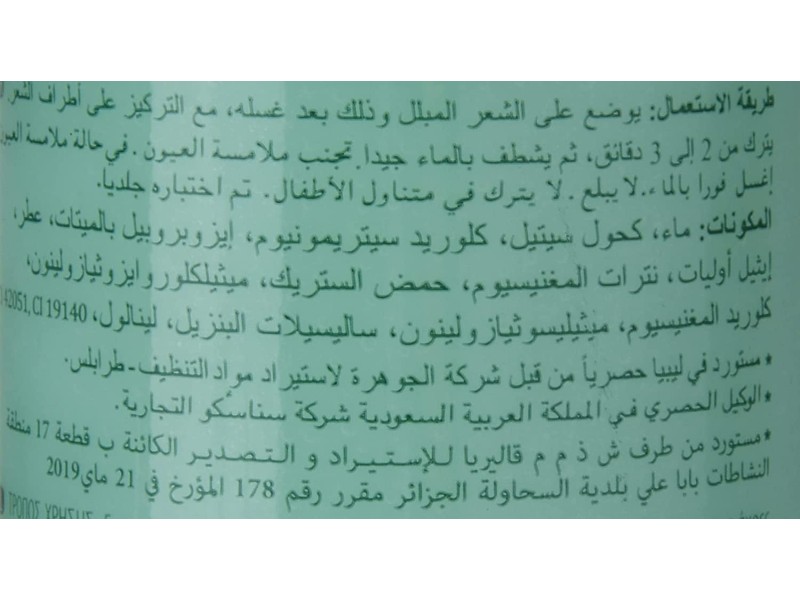 طريقة الاستعمال: يوضع على الشعر المبلل وذلك بعد غسله، مع التركيز على أطراف الشعر.
يترك من 2 إلى 3 دقائق، ثم يشطف بالماء جيدا. تجنب ملامسة العيون. في حالة ملامسة العيون
إغسل فورا بالماء. لا يبلع. لا يترك في متناول الأطفال. تم اختباره جلديا.
المكونات: ماء، كحول سيتيل، كلوريد سيتريمونيوم، إيزوبروبيل بالميتات، عطر،
إيثيل أوليات، نترات المغنيسيوم، حمض الستريك، ميثيلكلوروايزوثيازولينون،
كلوريد المغنيسيوم، ميثيليسوثيازولينون، ساليسيلات البنزيل، لينالول، 42051, CI 19140
* مستورد في ليبيا حصرياً من قبل شركة الجوهرة لاستيراد مواد التنظيف - طرابلس.
* الوكيل الحصري في المملكة العربية السعودية شركة سناسكو التجارية.
* مستورد من طرف ش ذ م م قاليريا للإستيراد و التصدير الكائنة ب قطعة 17 منطقة
النشاطات بابا علي بلدية السحاولة الجزائر مقرر رقم 178 المؤرخ في 21 ماي 2019
ΤΡΟΠΟΣ ΧΡΗΣΗΣ